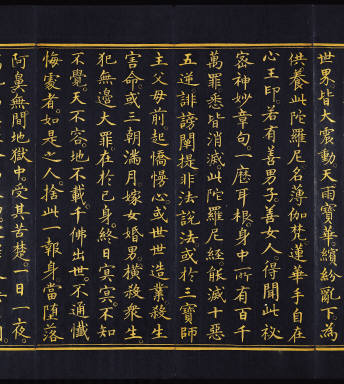 世界皆大震動天雨寶華繽紛亂下為
供養此陀羅尼名薄伽梵蓮華手自在
心王印若有善男子善女人得聞此秘
密神妙章句一歷耳根身中所有百千
萬罪悉皆消滅此陀羅尼經能滅十惡
五逆誹謗闡提非法說法或於三寶師
主父母前起憍慢心或世世造業殺生
害命或三朝滿月嫁女婚男橫殺眾生
犯無邊大罪在於己身終日冥冥不知
不覺天不容地不載千佛出世不通懺
悔處者如是之人捨此一報身當墮落
阿鼻無間地獄中受其苦楚一日一夜